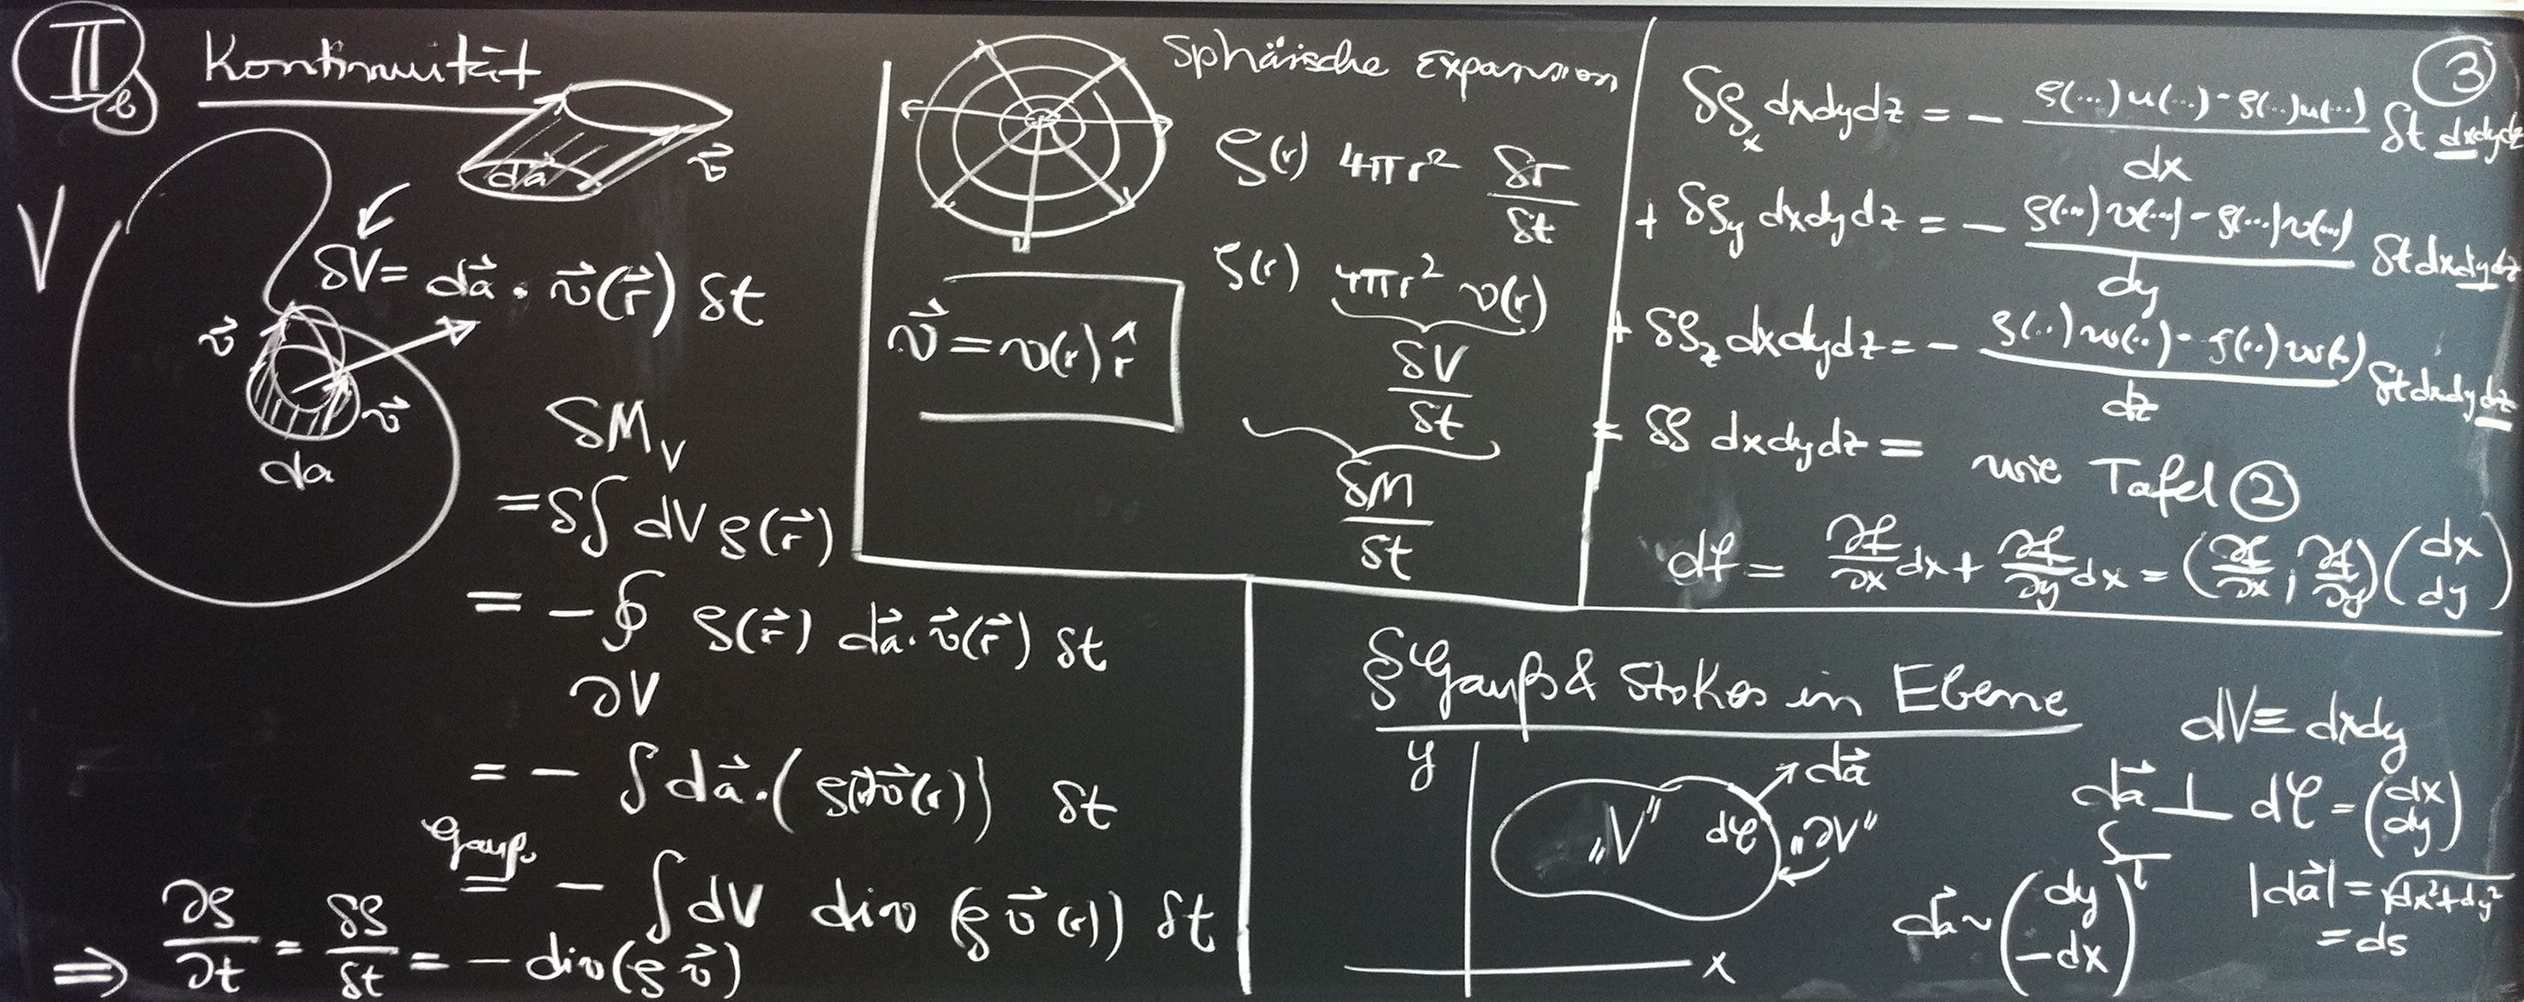 II b Kontinuität
da
v⃗
V
δV = da⃗ · v⃗(r⃗) δt
v⃗
v⃗
da
δM_V
= δ∫ dV ρ(r⃗)
= − ∮ ρ(r⃗) da⃗ · v⃗(r⃗) δt
∂V
= − ∫ da⃗ · (ρ(r) v⃗(r)) δt
Gauß
= − ∫ dV div (ρ v⃗(r)) δt
⇒ ∂ρ/∂t = δρ/δt = − div(ρ v⃗)
Sphärische Expansion
ρ(r) 4πr² δr/δt
ρ(r) 4πr² v(r)
δV/δt
δM/δt
v⃗ = v(r) r̂
③
δρ_x dxdydz = − (ρ(...)u(...) − ρ(...)u(...))/dx δt dxdydz
+ δρ_y dxdydz = − (ρ(...)v(...) − ρ(...)v(...))/dy δt dxdydz
+ δρ_z dxdydz = − (ρ(..)w(..) − ρ(..)w(..))/dz δt dxdydz
= δρ dxdydz = wie Tafel ②
df = ∂f/∂x dx + ∂f/∂y dx = (∂f/∂x ; ∂f/∂y) (dx dy)
§ Gauß & Stokes in Ebene
y
x
„V"
dℓ
da⃗
„∂V"
dV ≡ dxdy
da⃗ ⊥ dℓ = (dx dy)
da⃗ ~ (dy −dx)
|da⃗| = √(dx²+dy²)
= ds